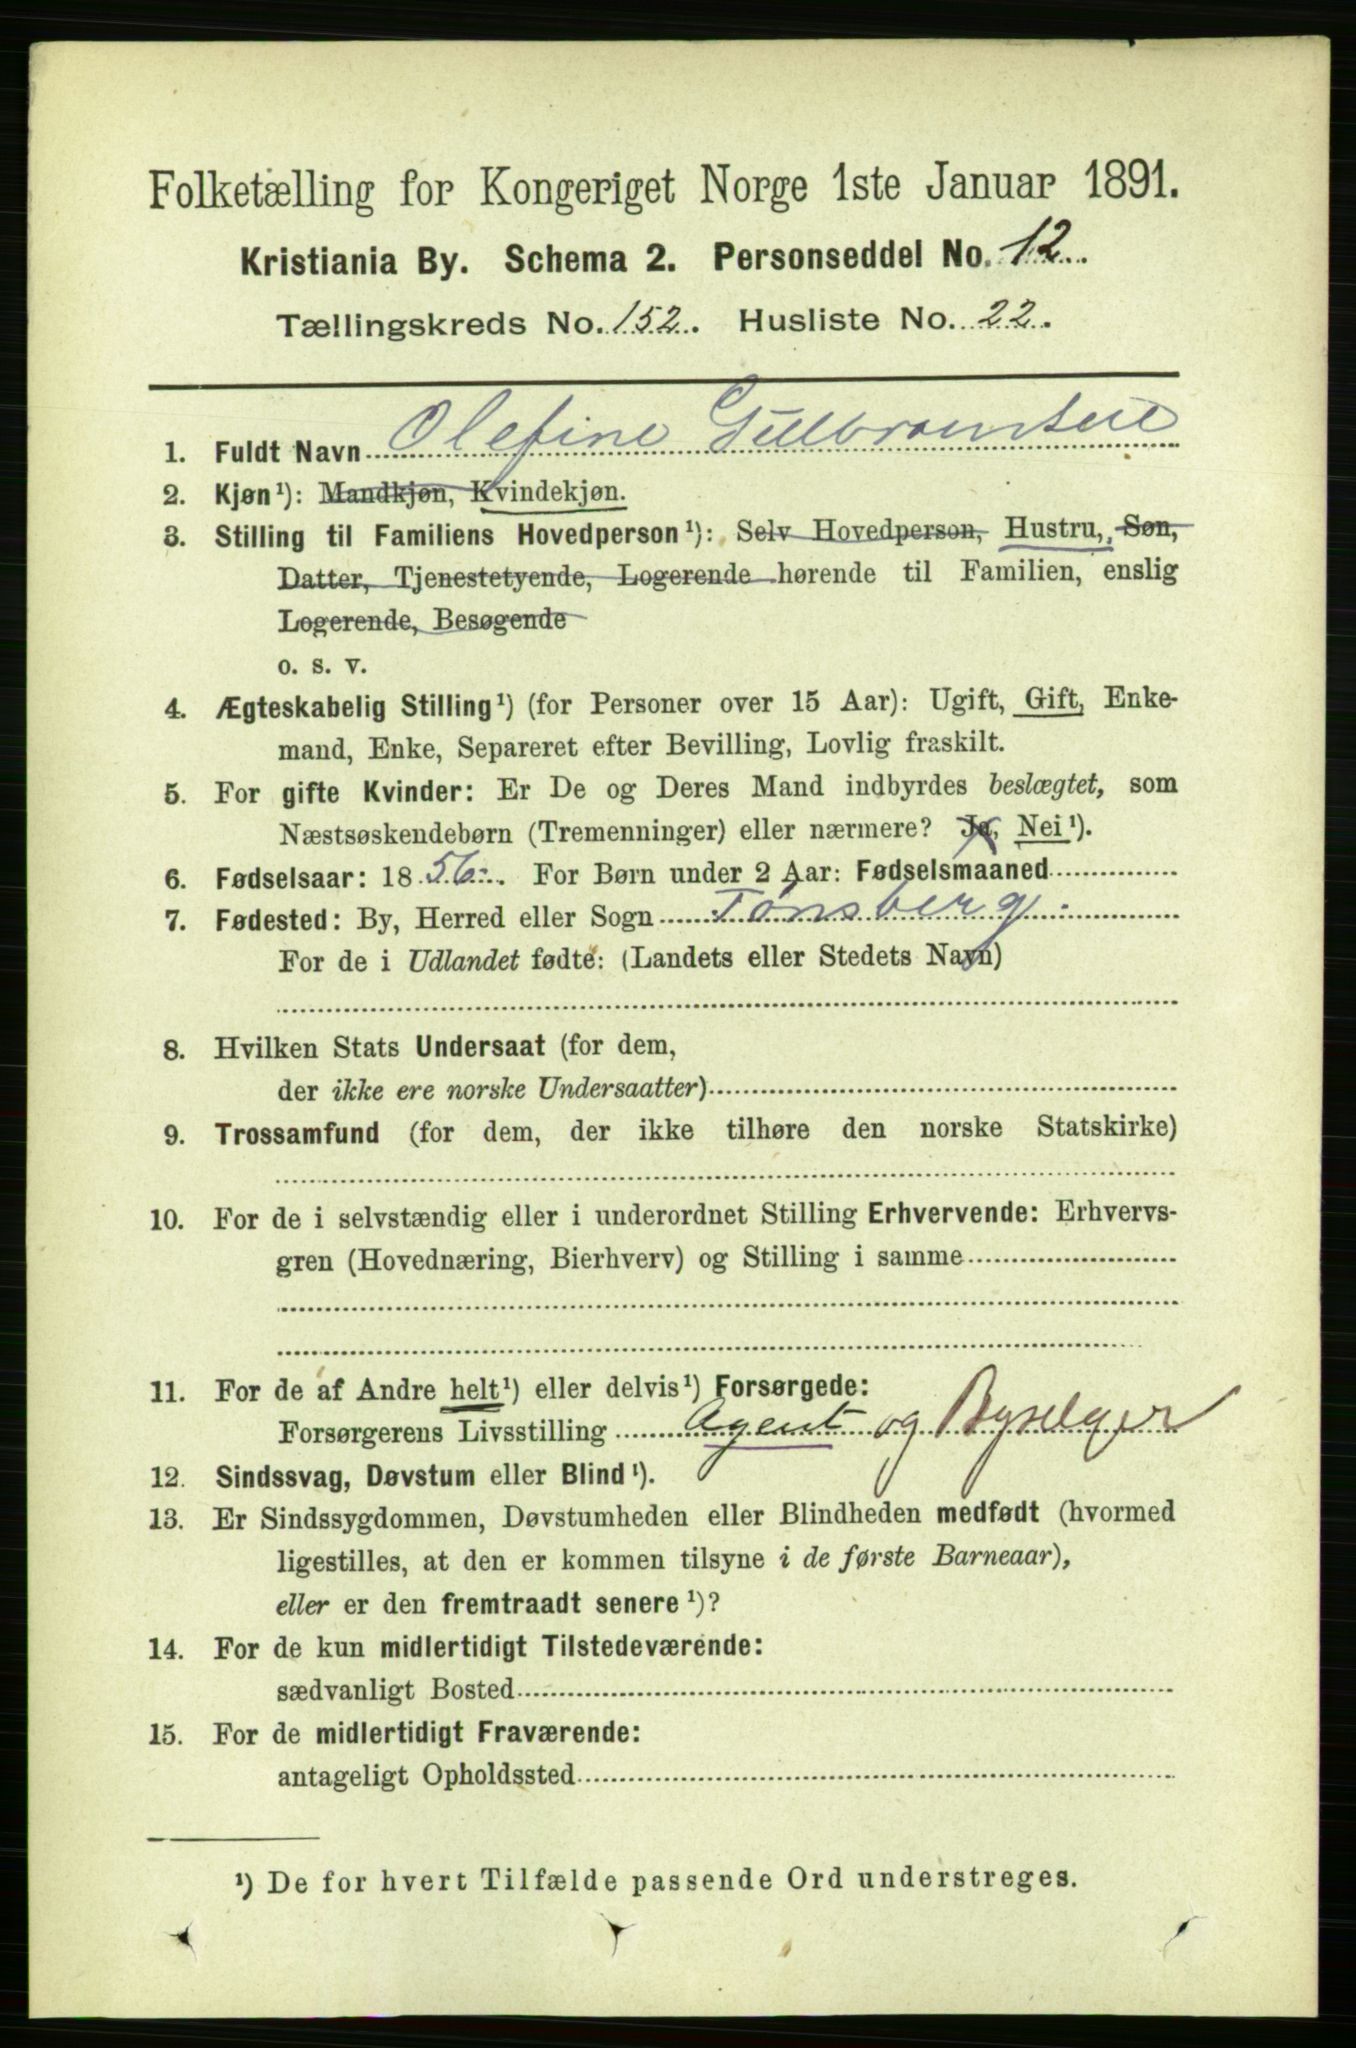 Folketælling for Kongeriget Norge 1ste Januar 1891.
Kristiania By. Schema 2. Personseddel No. 12.
Tællingskreds No. 152. Husliste No. 22.
1. Fuldt Navn Olefine Gulbransen
2. Kjøn ¹): Mandkjøn, Kvindekjøn.
3. Stilling til Familiens Hovedperson ¹): Selv Hovedperson, Hustru, Søn,
Datter, Tjenestetyende, Logerende hørende til Familien, enslig
Logerende, Besøgende
o. s. v.
4. Ægteskabelig Stilling ¹) (for Personer over 15 Aar): Ugift, Gift, Enke-
mand, Enke, Separeret efter Bevilling, Lovlig fraskilt.
5. For gifte Kvinder: Er De og Deres Mand indbyrdes beslægtet, som
Næstsøskendebørn (Tremenninger) eller nærmere? Ja, Nei ¹).
6. Fødselsaar: 1856. For Børn under 2 Aar: Fødselsmaaned
7. Fødested: By, Herred eller Sogn Tønsberg.
For de i Udlandet fødte: (Landets eller Stedets Navn)
8. Hvilken Stats Undersaat (for dem,
der ikke ere norske Undersaatter)
9. Trossamfund (for dem, der ikke tilhøre den norske Statskirke)
10. For de i selvstændig eller i underordnet Stilling Erhvervende: Erhvervs-
gren (Hovednæring, Bierhverv) og Stilling i samme
11. For de af Andre helt ¹) eller delvis ¹) Forsørgede:
Forsørgerens Livsstilling Agent og Byselger
12. Sindssvag, Døvstum eller Blind ¹).
13. Er Sindssygdommen, Døvstumheden eller Blindheden medfødt (hvormed
ligestilles, at den er kommen tilsyne i de første Barneaar),
eller er den fremtraadt senere ¹)?
14. For de kun midlertidigt Tilstedeværende:
sædvanligt Bosted
15. For de midlertidigt Fraværende:
antageligt Opholdssted
¹) De for hvert Tilfælde passende Ord understreges.